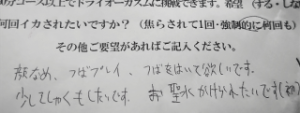 分コース以上でドライオーガズムに挑戦できます。希望(する・しな
何回イカされたいですか?(焦らされて1回・強制的に何回も)
その他ご要望があればご記入ください。
顔なめ、つばプレイ、つばをはいて欲しいです。
少してしゃくもしたいです。お聖水かけられたいです(初)